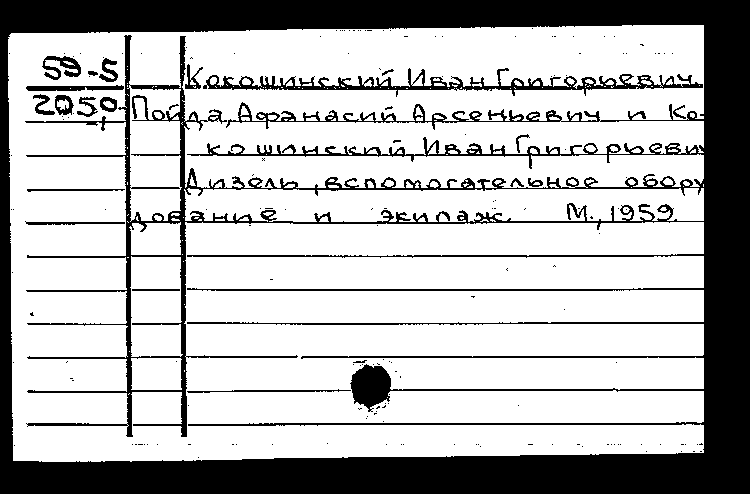 59-5 Кокошинский, Иван Григорьевич.
2050 Пойда, Афанасий Арсеньевич и Ко-
кошинский, Иван Григорьевич
Дизель, вспомогательное обору
дование и экипаж. М., 1959.